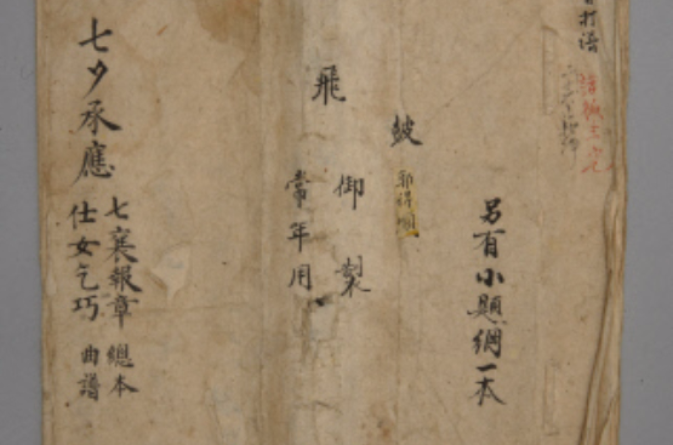 打譜
另有小題綱一本
鼓
郭得順
御製
飛
常年用
七夕承應
七襄報章 總本
仕女乞巧 曲譜